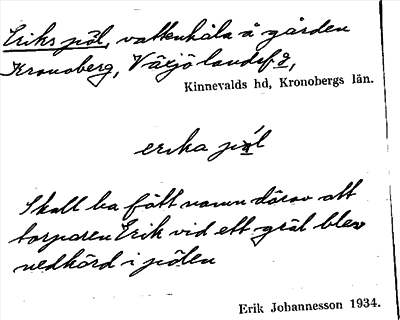 Eriks pöl, vattenhåla å gården
Kronoberg, Växjö landsfg,
Kinnevalds hd, Kronobergs län.
erika pöl
Skall ha fått namn därav att
torparen Erik vid ett gräl blev
nedkörd i pölen
Erik Johannesson 1934.